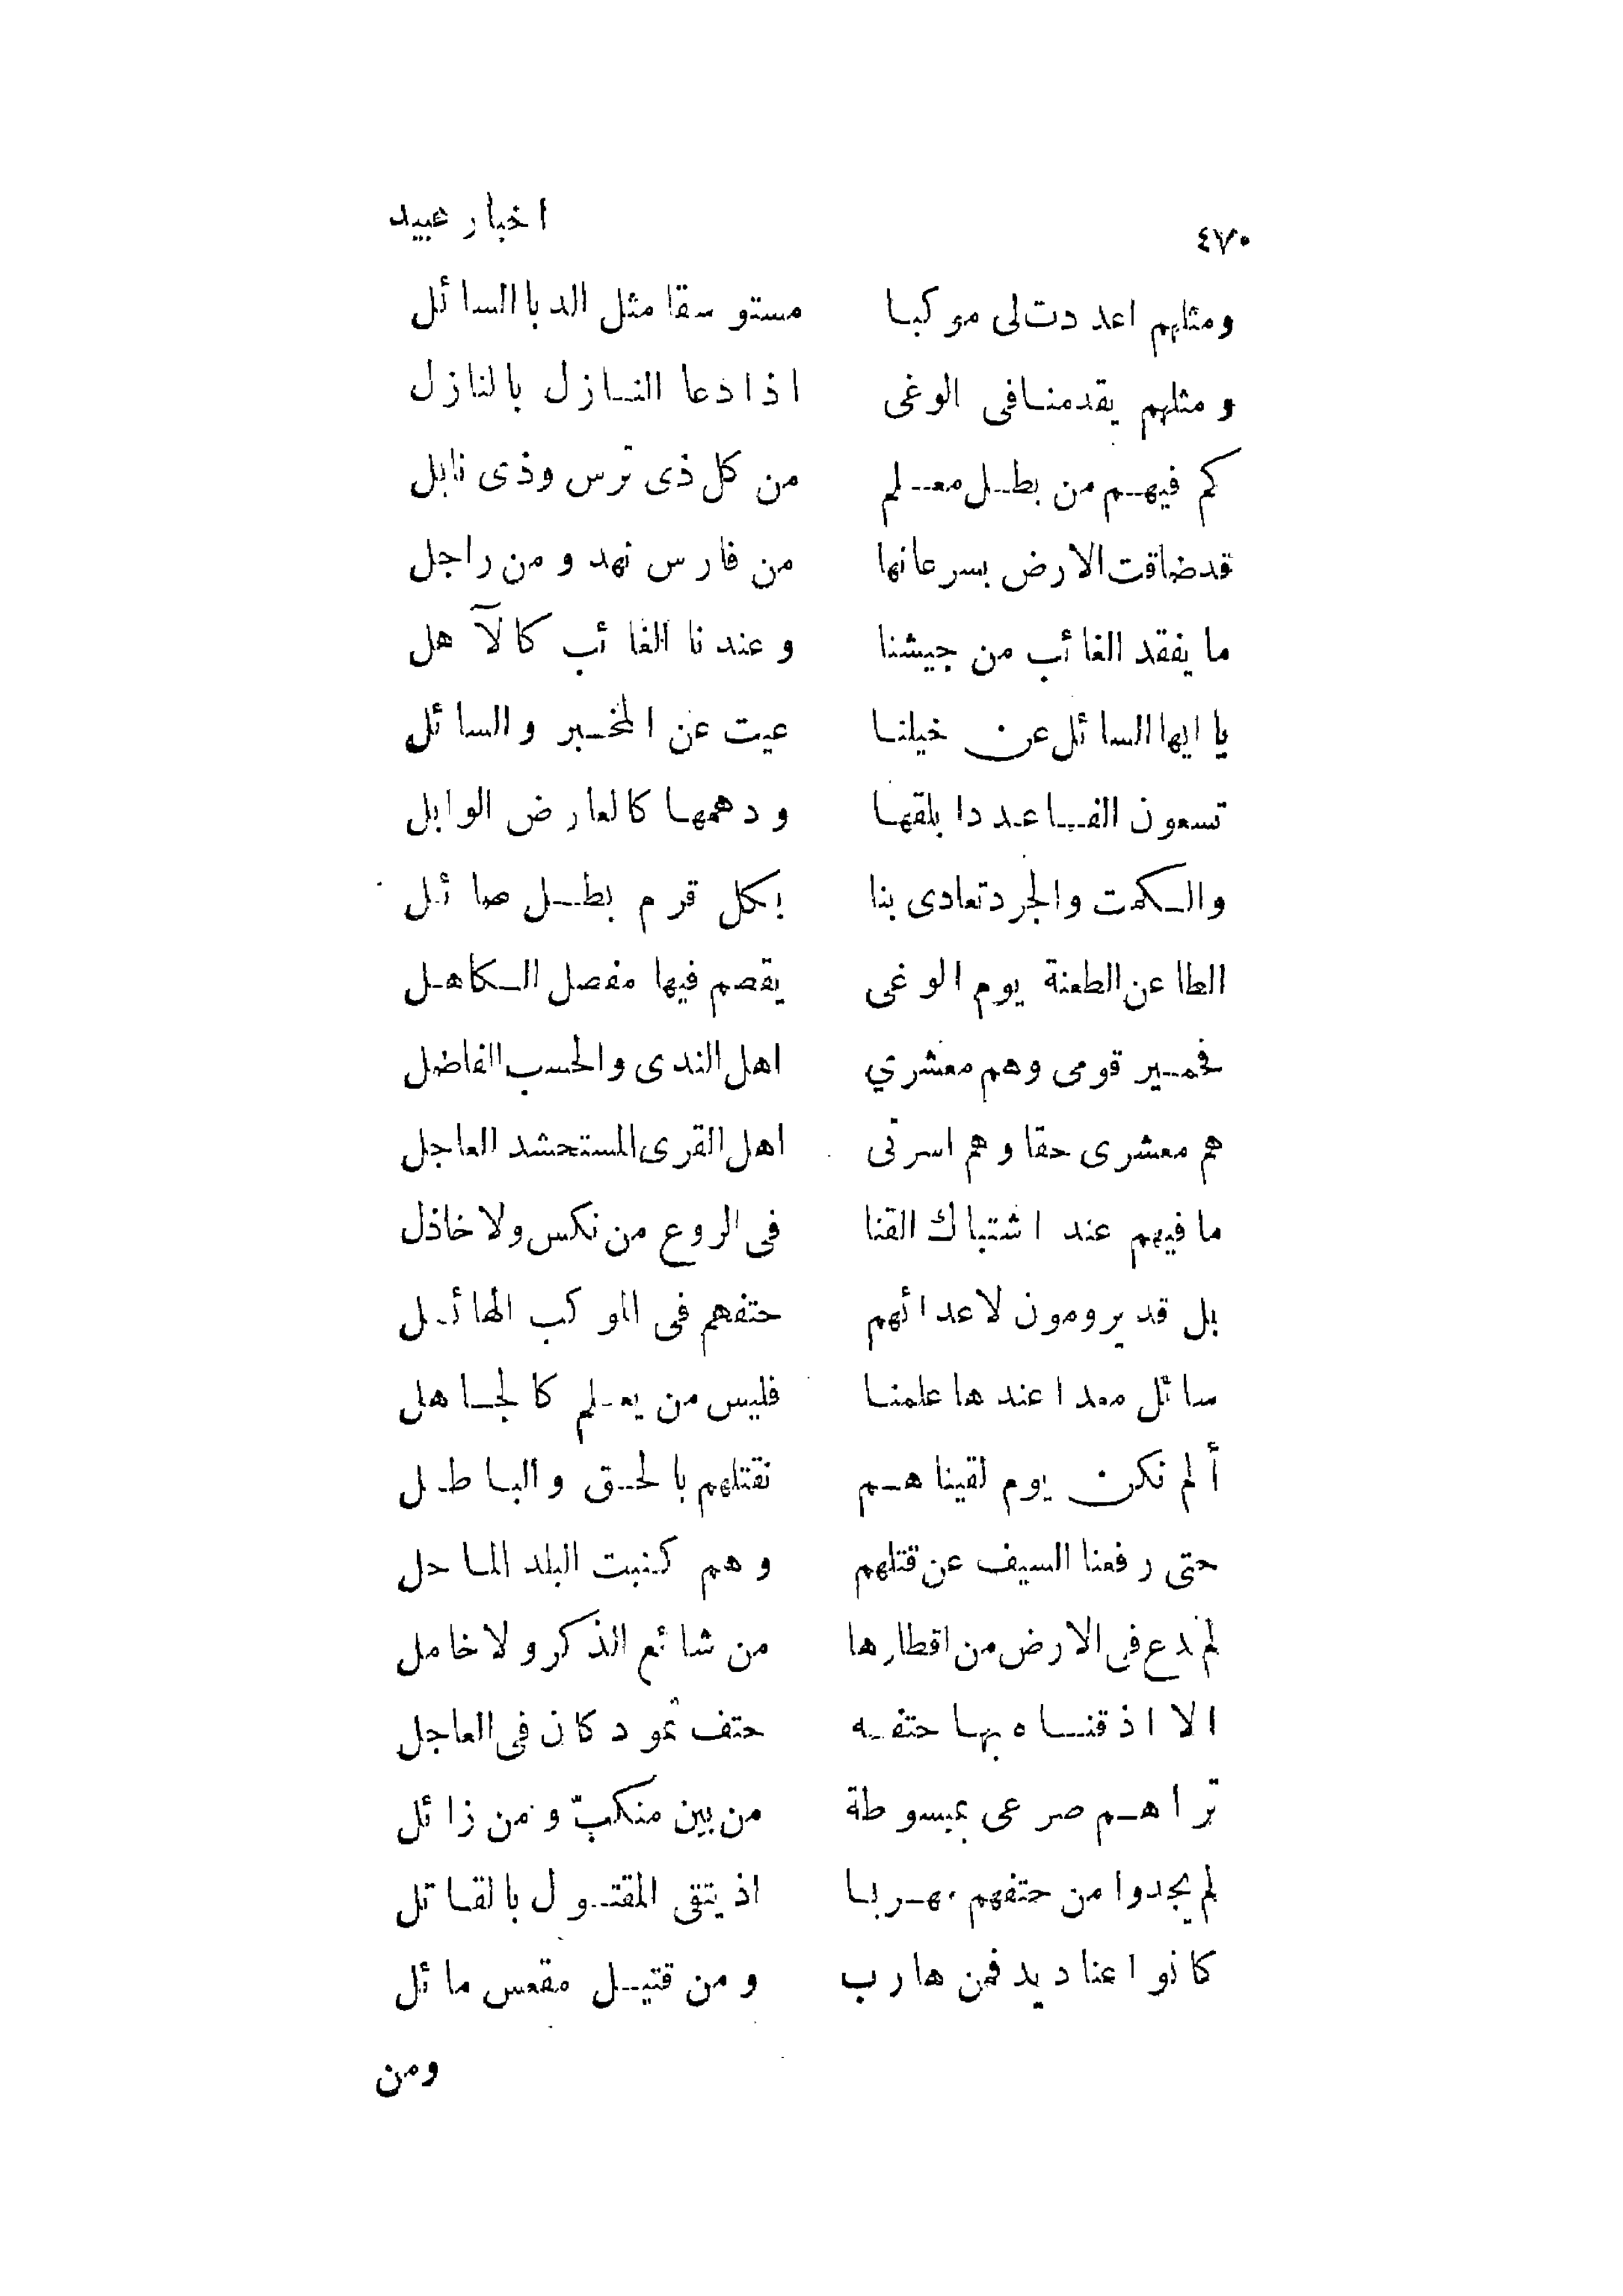 ٤٧٠ اخبار عبيد
ومثلهم اعددت لى موكبا مستوسقا مثل الدبا السائل
ومثلهم يقدمنا فى الوغى اذا دعا النازل بالنازل
كم فيهم من بطل معلم من كل ذى ترس وذى نابل
قد ضاقت الارض بسرعانها من فارس نهد ومن راجل
ما يفقد الغائب من جيشنا وعندنا الغائب كالآهل
يا ايها السائل عن خيلنا عيت عن المخبر والسائل
تسعون الفا عددا بلقها ودهمها كالعارض الوابل
والكمت والجرد تعادى بنا بكل قرم بطل صائل
الطاعن الطعنة يوم الوغى يقصم فيها مفصل الكاهل
فحمير قومى وهم معشري اهل الندى والحسب الفاضل
هم معشرى حقا وهم اسرتى اهل القرى المستحشد العاجل
ما فيهم عند اشتباك القنا فى الروع من نكس ولا خاذل
بل قد يرومون لاعدائهم حتفهم فى الموكب الهائل
سائل معدا عندها علمنا فليس من يعلم كالجاهل
ألم نكن يوم لقيناهم نقتلهم بالحق والباطل
حتى رفعنا السيف عن قتلهم وهم كنبت البلد الماحل
لم ندع فى الارض من اقطارها من شائع الذكر ولا خامل
الا اذقناه بها حتفه حتف ثمود كان فى العاجل
تراهم صرعى بمبسوطة من بين منكبّ ومن زائل
لم يجدوا من حتفهم مهربا اذ يتقى المقتول بالقاتل
كانوا عناديد فمن هارب ومن قتيل مقعس مائل
ومن